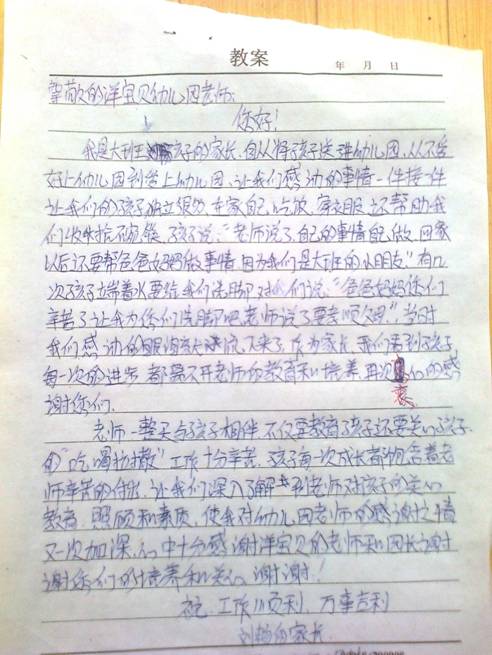 教案
年 月 日
尊敬的洋宝贝幼儿园老师:
您好!
我是大班王孩子的家长,自从将孩子送到幼儿园,从不爱
好上幼儿园到爱上幼儿园,让我们感动的事情一件接一件
让我们的孩子独立很多,在家自己吃饭,穿衣服,还帮助我
们收碗、孩子说:"老师说了,自己的事情自己做,回家
以后还要帮爸爸妈妈做事情,因为我们是大班的小朋友"有几
次孩子端着水要给我们洗脚对我们说:"爸爸妈妈你们
辛苦了让我为你们洗脚吧老师说了要孝顺父母"当时
我们感动的眼泪流下来了,作为家长,我们看到孩子
每一次的进步,都离不开老师的教育和培养,再次衷心的感
谢您们.
老师一整天与孩子相伴,不仅要教育孩子还要关心孩子
的"吃喝拉撒"工作十分辛苦,孩子每一次成长都饱含着老
师辛苦的付出,让我们深入了解到老师对孩子的关心
教育,照顾和素质,使我对幼儿园老师的感谢之情
又一次加深,心中十分感谢洋宝贝的老师和园长谢谢
谢您们的培养和关心,谢谢!
祝:工作顺利,万事吉利
刘畅的家长